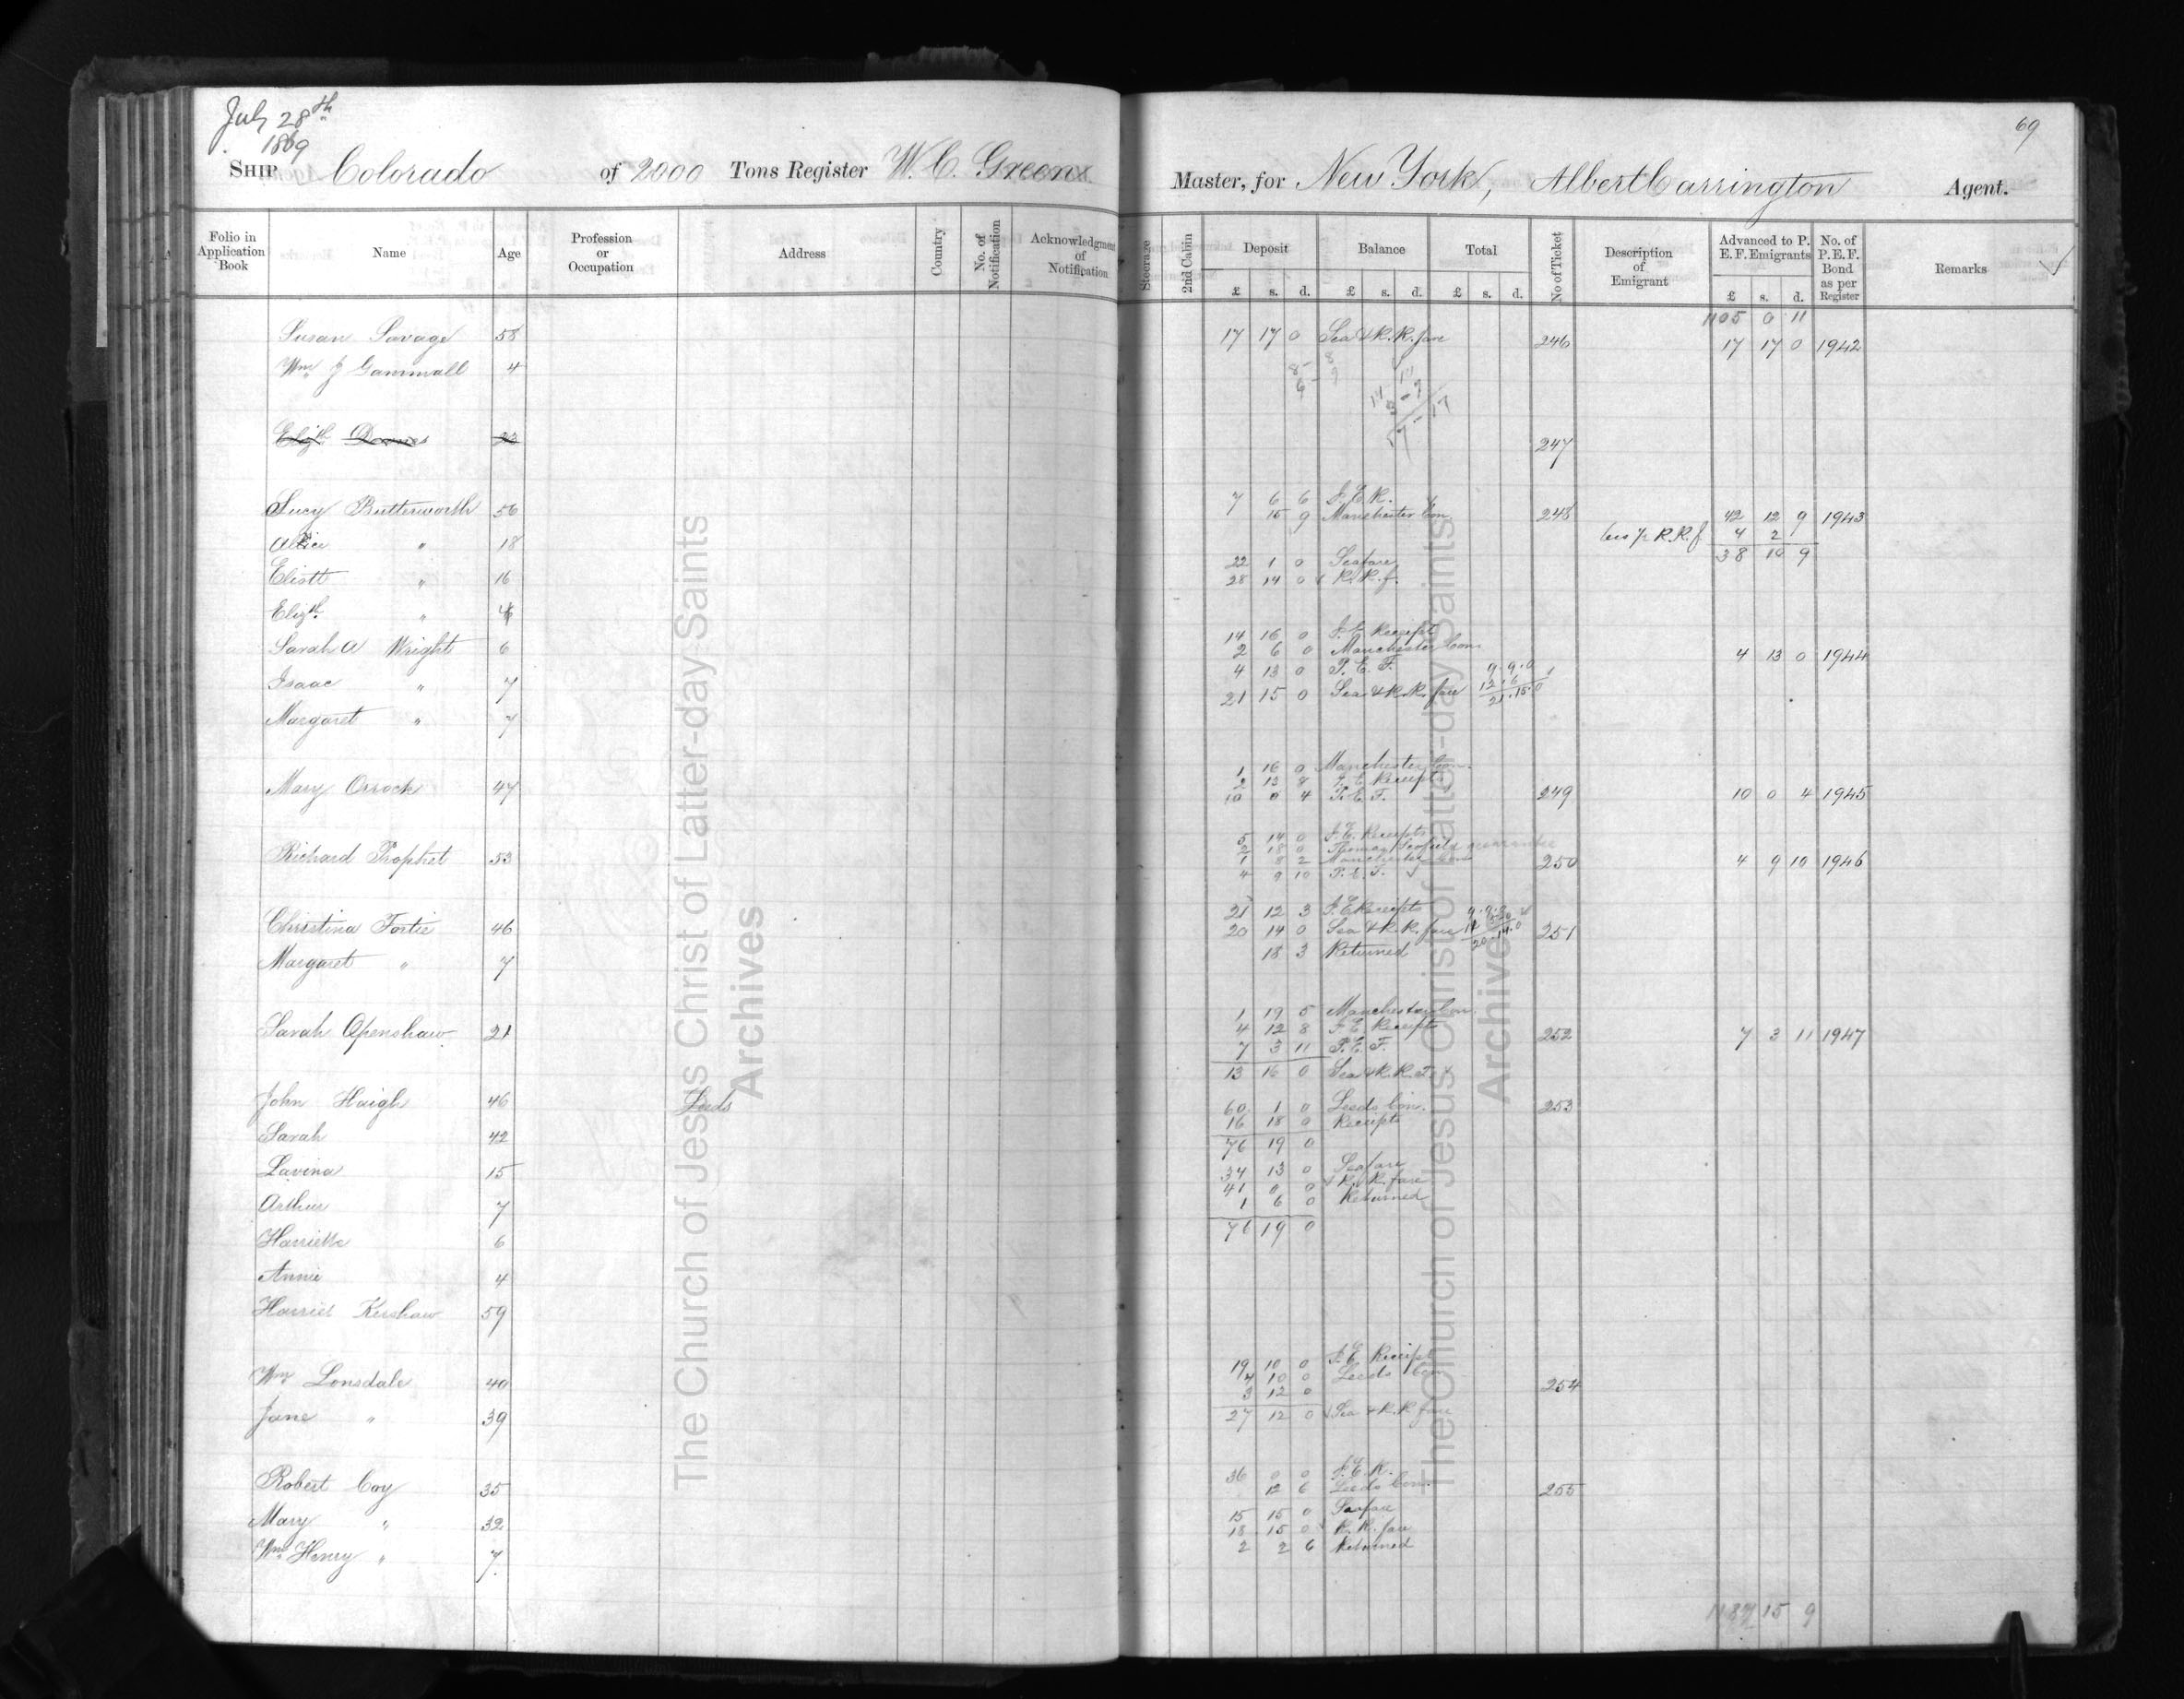 July 28th
1869
69
SHIP Colorado of 2000 Tons Register W. C. Green Master, for New York, Albert Carrington Agent.
Folio in Application Book Name Age Profession or Occupation Address Country No. of Notification Acknowledgment of Notification Steerage 2nd Cabin Deposit Balance Total No of Ticket Description of Emigrant Advanced to P. E. F. Emigrants No. of P. E. F. Bond as per Register Remarks
£ s. d. £ s. d. £ s. d. £ s. d.
1105 0 11
Susan Savage 58 17 17 0 Sea & R. R. fare 246 17 17 0 1942
Wm J Gammall 4
Elizth Downes 23 247
Lucy Butterworth 56 7 6 6 I. E. R. 248 42 12 9 1943
15 9 Manchester Con
Alice " 18 R. R. f. 4 2
38 10 9
22 1 0 Seafare
Eliott " 16 28 14 0 R. R. f.
Elizth " 4
Sarah A Wright 6 14 16 0 I. E. Receipt
2 6 0 Manchester Con 4 13 0 1944
4 13 0 P. E. F. 9.9.0
Isaac " 7 21 15 0 Sea & R. R. fare 12.6
21.15.0
Margaret " 7
1 16 0 Manchester Con.
Mary Orrock 47 2 13 8 I. E. Receipt
10 0 4 P. E. F. 249 10 0 4 1945
5 14 0 I. E. Receipts
Richard Prophet 53 2 18 0 Thomas
1 8 2 Manchester Con 250 4 9 10 1946
4 9 10 P. E. F.
21 12 3 I. E. Receipts
Christina Fortie 46 20 14 0 Sea & R. R. fare 20.14.0 251
Margaret " 7 18 3 Returned
1 19 5 Manchester Con.
Sarah Openshaw 21 4 12 8 I. E. Receipts 252 7 3 11 1947
7 3 11 P. E. F.
13 16 0 Sea & R. R. F.
John Haigh 46 Leeds 60 1 0 Leeds Con. 253
16 18 0 Receipts
Sarah 42 76 19 0
Lavina 15 34 13 0 Seafare
41 0 0 R. R. fare
Arthur 7 1 6 0 Returned
76 19 0
Harriette 6
Annie 4
Harriet Kershaw 59
19 10 0 I. E. Receipt
Wm Lonsdale 40 4 10 0 Leeds Con 254
3 12 0
Jane " 39 27 12 0 Sea & R. R fare
36 0 0 I. E. R.
Robert Coy 35 12 6 Leeds Con. 255
Mary " 32 15 15 0 Seafare
18 15 0 R. R. fare
Wm Henry " 7 2 2 6 Returned
15 9
The Church of Jesus Christ of Latter-day Saints
Archives
The Church of Jesus Christ of Latter-day Saints
Archives